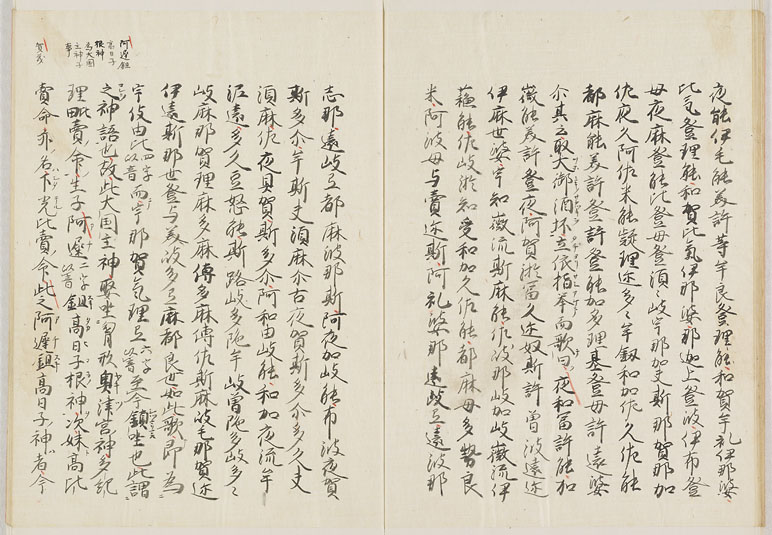 夜能伊毛能美許等牟良登理能和賀牟礼伊那婆
比気登理能和賀比気伊那婆那迦士登波伊布登
母夜麻登能比登母登湏々岐宇那加夫斯那賀那加
佐夜久阿佐米能疑理迩多々牟釼和加佐久佐能
都麻能美許登許登能加多理基登母許遠婆
尓其后取大御酒坏立依指挙而歌曰夜知富許能加
微能美許登夜阿賀淤富久迩奴斯許曽波遠迩
伊麻世婆宇知微流斯麻能佐岐耶岐加岐微流伊
蘇能佐岐淤知受和加久佐能都麻母多勢良
米阿波母与売迩斯阿礼婆那遠岐弖遠波那
志那遠岐弖都麻波那斯阿夜加岐能布波夜賀
斯多尓牟斯夫湏麻尓古夜賀斯多尓多久夫
湏麻佐夜具賀斯多尓阿和由岐能和加夜流牟
泥遠多久豆怒能斯路岐多陁牟岐曽陁多岐多々
岐麻那賀理麻多麻傳多麻傳佐斯麻岐毛毛那賀迩
伊遠斯那世登与美岐多弖麻都良世如此歌即為
宇伎由比四字以音而宇那賀気理弖六字以音至今鎮坐也此謂
之神語也故此大国主神娶坐胷形奥津宮神多紀
理毗賣命生子阿遅二字以音鉏高日子根神次妹高比
賣命亦名下光比賣命此之阿遅鉏高日子神者今
阿遅鉏
高日子
根神
為大国
主神子
事
賀茂